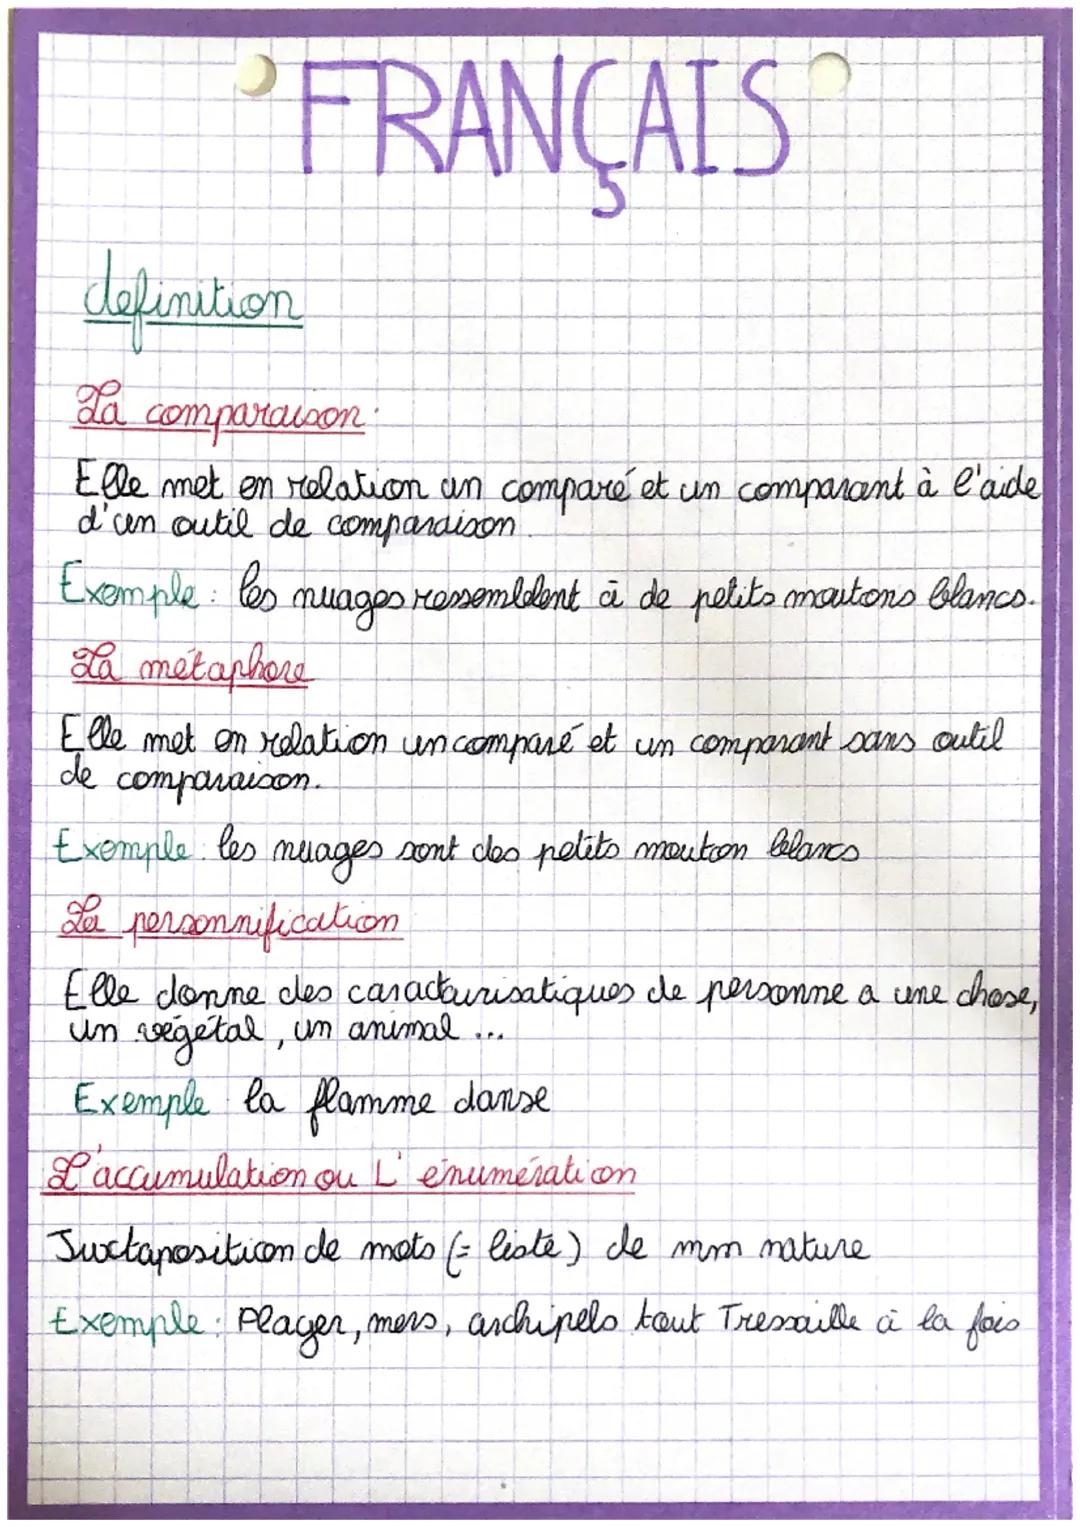 FRANÇAIS
definition
La comparaison:
Elle met en relation un comparé et un comparant à l'aide
d'un outil de comparaison.
Exemple : les nuages ressemblent à de petits moutons blancs.
La métaphore
Elle met en relation un comparé et un comparant sans outil
de comparaison.
Exemple : les nuages sont des petits mouton blancs
La personnification
Elle donne des caractèurisatiques de personne a une chose,
un végétal, un animal ...
Exemple la flamme danse
L'accumulation ou L'énumération
Juxtaposition de mots (= liste) de mm nature
Exemple : Plager, mers, archipels tout Tressaille à la fois